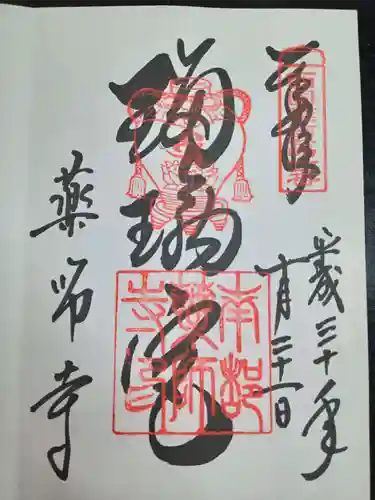 奉拝
平成三十年
十月二十一日
瑠璃光
南都
薬師
寺印
薬師寺